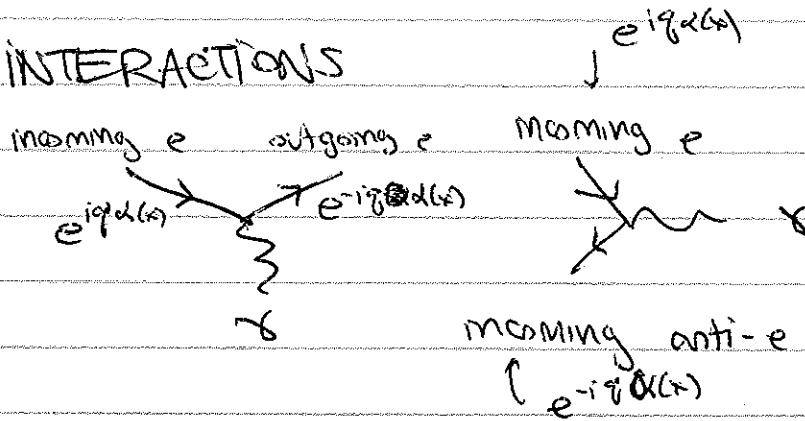 INTERACTIONS
e^{iqα(x)}
incoming e outgoing e incoming e
e^{iqα(x)} e^{-iqα(x)}
γ γ
incoming anti-e
e^{-iqα(x)}